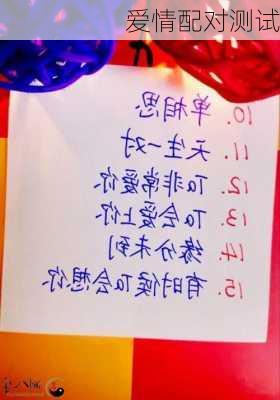 爱情配对测试
10. 单相思
11. 天生一对
12. Ta非常爱你
13. Ta会爱上你
14. 缘分未到
15. 有时候Ta会想你